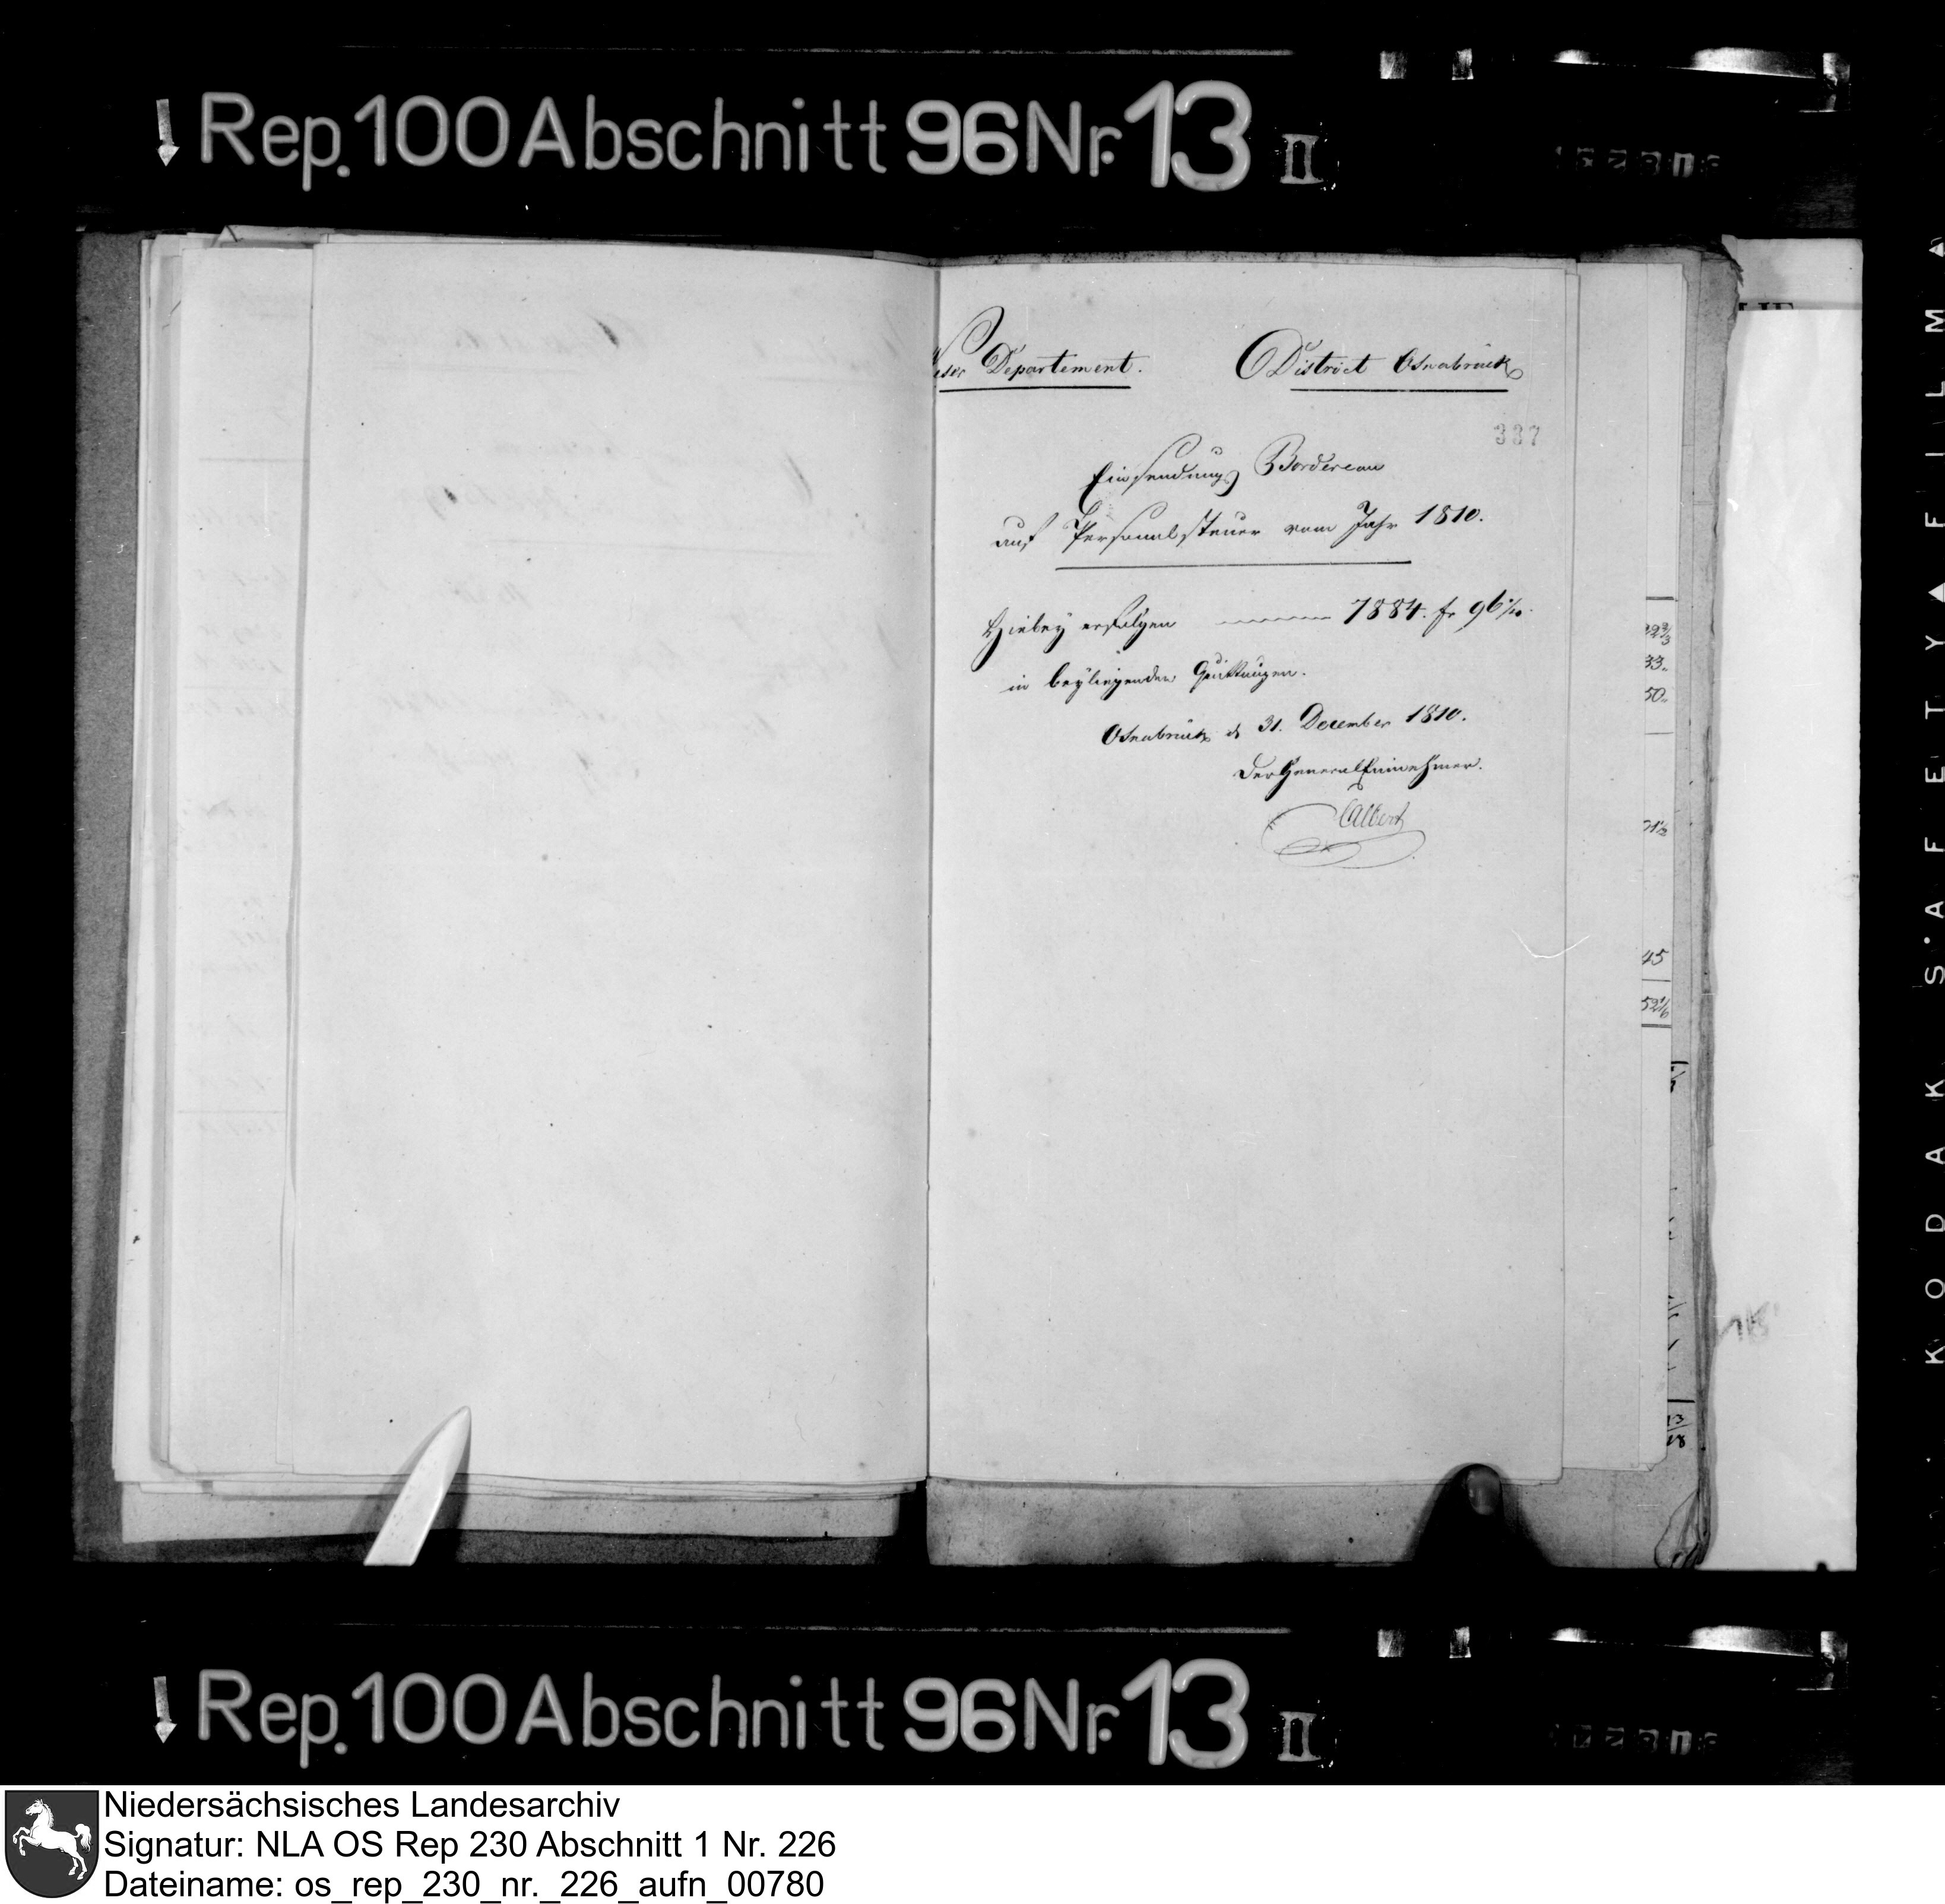 Rep. 100 Abschnitt 96 Nr. 13 II
Weser Departement. District Osnabrück
337
Einsendungs Bordereau
auf Personalsteuer vom Jahr 1810.
Hiebey erfolgen 7884. fr 96
in beyliegenden Quittungen.
Osnabrück d 31. December 1810.
Der General Einnehmer.
Calbert
33.
50.
45
KODAK SAFETY FILM
Rep. 100 Abschnitt 96 Nr. 13 II
Niedersächsisches Landesarchiv
Signatur: NLA OS Rep 230 Abschnitt 1 Nr. 226
Dateiname: os_rep_230_nr._226_aufn_00780